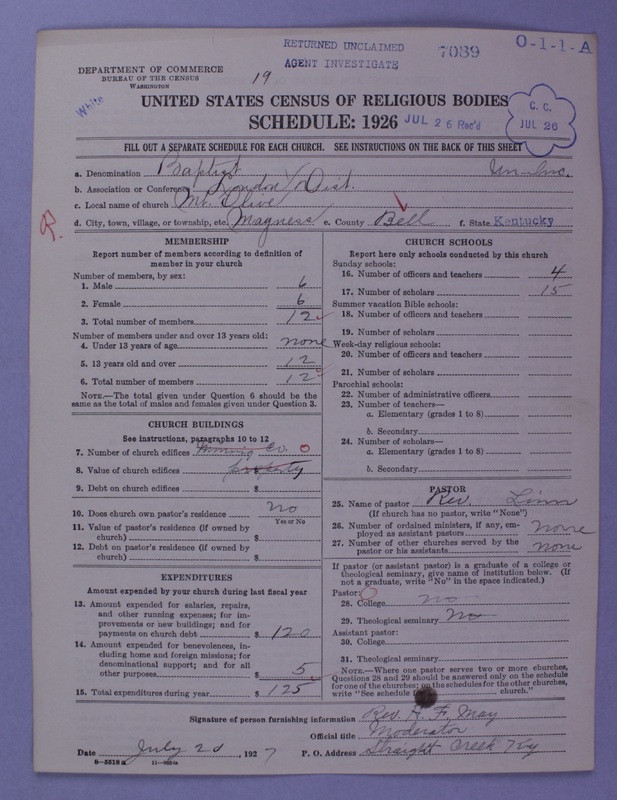 RETURNED UNCLAIMED
AGENT INVESTIGATE
7039
O-1-1-A
DEPARTMENT OF COMMERCE
BUREAU OF THE CENSUS
WASHINGTON
19
White
UNITED STATES CENSUS OF RELIGIOUS BODIES
SCHEDULE: 1926
JUL 26 Rec'd
C. C.
JUL 26
FILL OUT A SEPARATE SCHEDULE FOR EACH CHURCH. SEE INSTRUCTIONS ON THE BACK OF THIS SHEET
a. Denomination Baptist Un-Inc.
b. Association or Conference London Dist.
c. Local name of church Mt. Olive
d. City, town, village, or township, etc. Magness e. County Bell f. State Kentucky
R.
MEMBERSHIP
Report number of members according to definition of member in your church
Number of members, by sex:
1. Male 6
2. Female 6
3. Total number of members 12
Number of members under and over 13 years old:
4. Under 13 years of age none
5. 13 years old and over 12
6. Total number of members 12
NOTE.—The total given under Question 6 should be the same as the total of males and females given under Question 3.
CHURCH BUILDINGS
See instructions, paragraphs 10 to 12
7. Number of church edifices Mining Co. 0
8. Value of church edifices property
9. Debt on church edifices $
10. Does church own pastor's residence no
Yes or No
11. Value of pastor's residence (if owned by church) $
12. Debt on pastor's residence (if owned by church) $
EXPENDITURES
Amount expended by your church during last fiscal year
13. Amount expended for salaries, repairs, and other running expenses; for improvements or new buildings; and for payments on church debt $ 120
14. Amount expended for benevolences, including home and foreign missions; for denominational support; and for all other purposes $ 5
15. Total expenditures during year $ 125
CHURCH SCHOOLS
Report here only schools conducted by this church
Sunday schools:
16. Number of officers and teachers 4
17. Number of scholars 15
Summer vacation Bible schools:
18. Number of officers and teachers
19. Number of scholars
Week-day religious schools:
20. Number of officers and teachers
21. Number of scholars
Parochial schools:
22. Number of administrative officers
23. Number of teachers—
a. Elementary (grades 1 to 8)
b. Secondary
24. Number of scholars—
a. Elementary (grades 1 to 8)
b. Secondary
PASTOR
25. Name of pastor Rev. Linn
(If church has no pastor, write "None")
26. Number of ordained ministers, if any, employed as assistant pastors none
27. Number of other churches served by the pastor or his assistants none
If pastor (or assistant pastor) is a graduate of a college or theological seminary, give name of institution below. (If not a graduate, write "No" in the space indicated.)
Pastor: 0
28. College no
29. Theological seminary No
Assistant pastor:
30. College
31. Theological seminary
NOTE.—Where one pastor serves two or more churches, Questions 28 and 29 should be answered only on the schedule for one of the churches; on the schedules for the other churches, write "See schedule church."
Signature of person furnishing information Rev. H. F. May
Official title Moderator
Date July 20, 1927 P. O. Address Straight Creek Ky
8—5518a 11—9554a